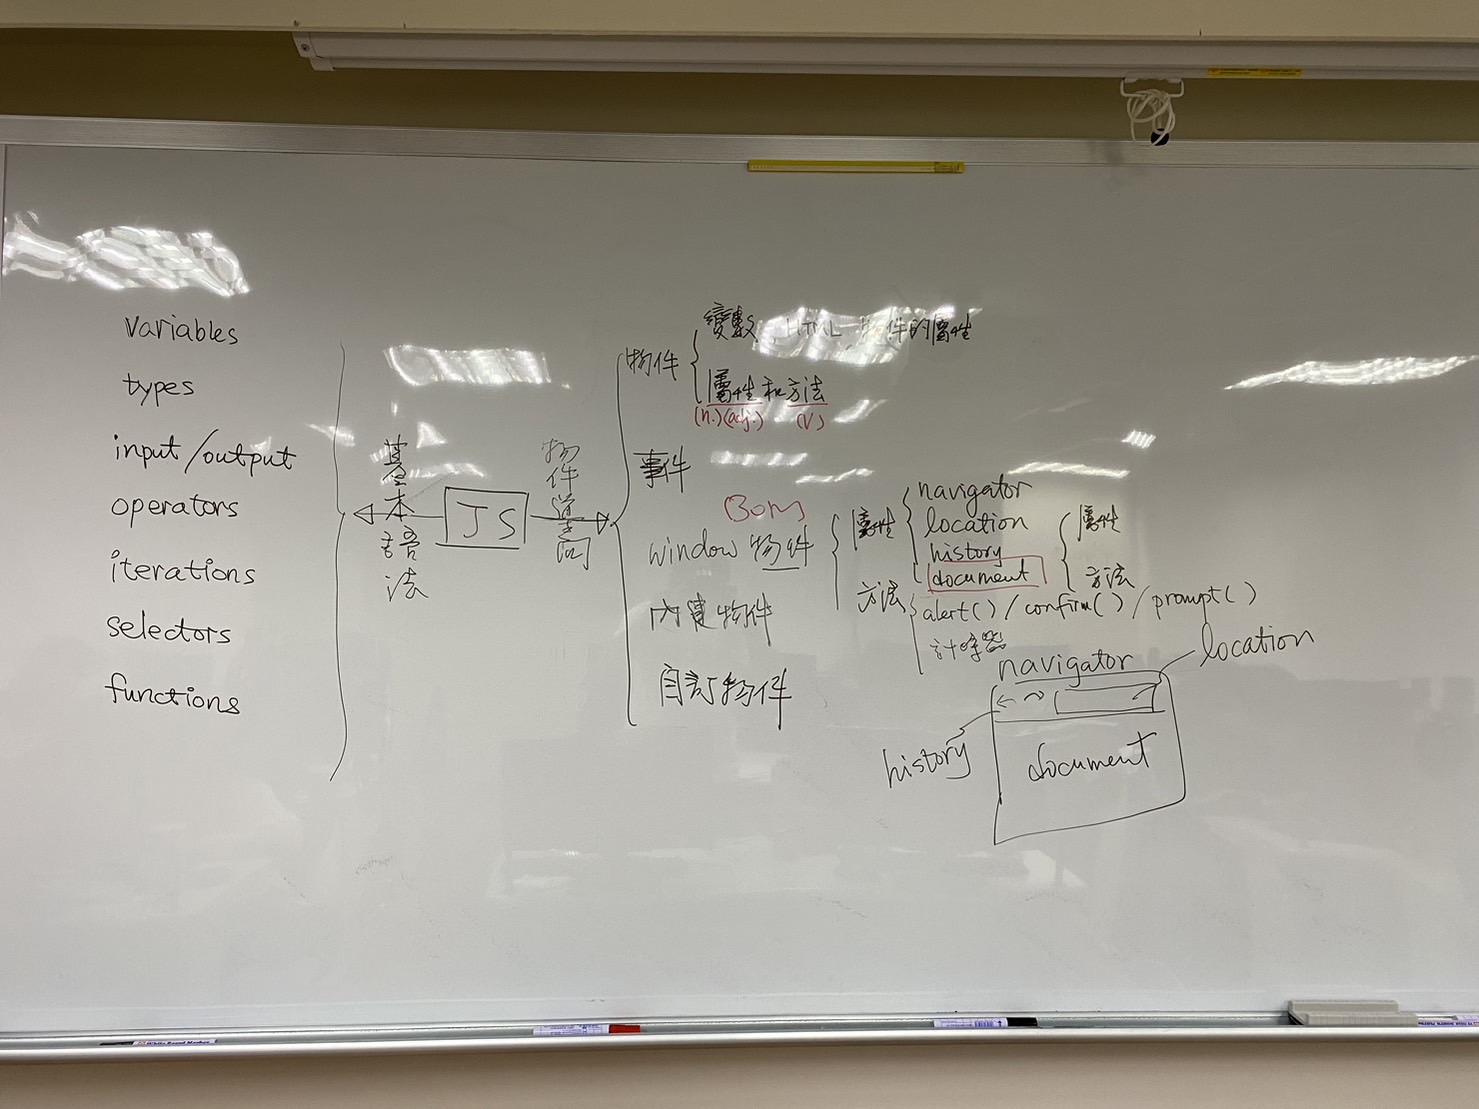 variables
types
input/output
operators
iterations
selectors
functions
基本語法
JS
物件
物件
變數、HTML 物件的屬性
屬性和方法
(n.)(adj.) (V)
事件
BOM
window 物件
內建物件
自訂物件
屬性
navigator
location
history
document
屬性
方法
方法
alert()/confirm()/prompt()
計時器
navigator
location
history
document
White Board Marker